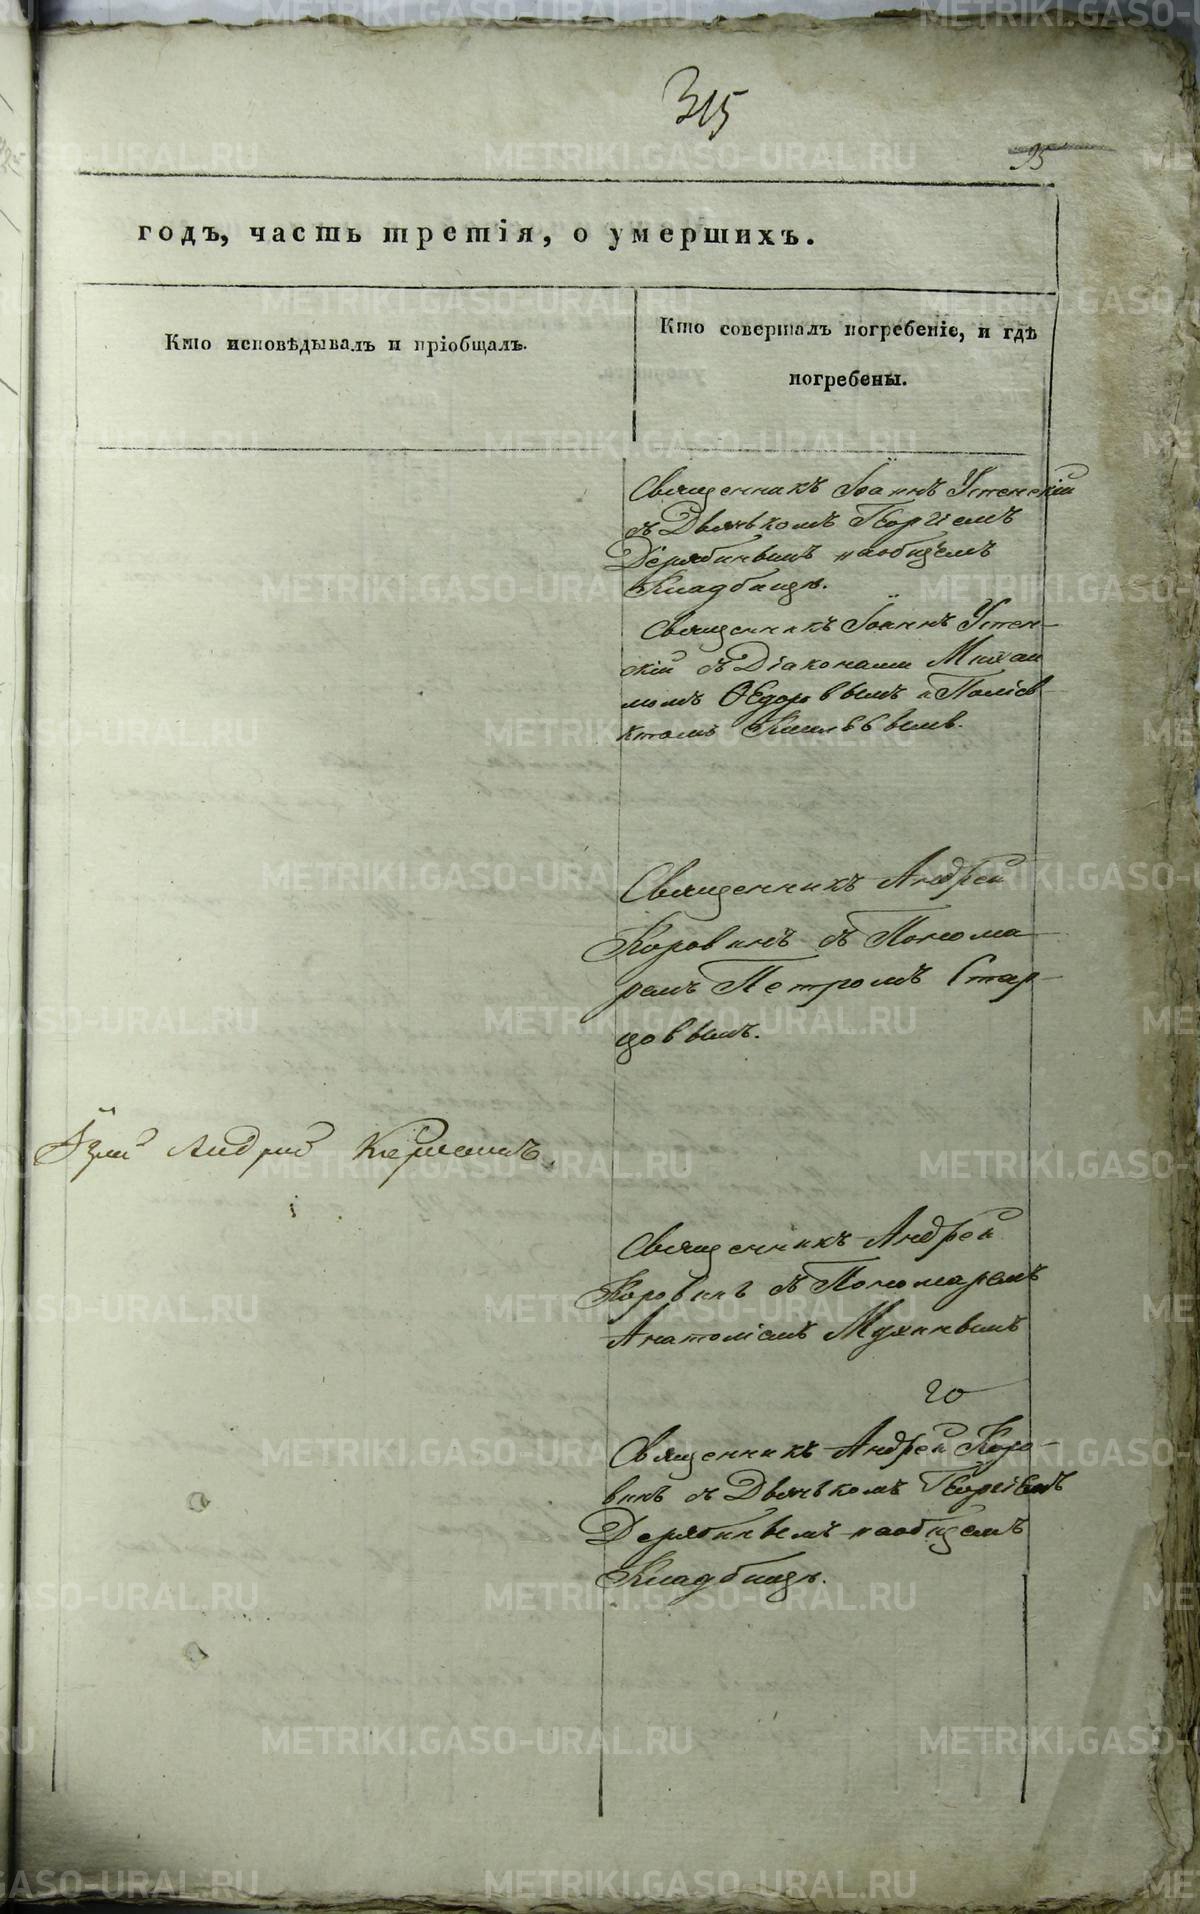 315
95
годъ, часть третія, о умершихъ.
Кто исповѣдывалъ и пріобщалъ.
Кто совершалъ погребеніе, и гдѣ
погребены.
Священникъ Іоаннъ Успенскій
съ Дьячькомъ Георгіемъ
Дерябинымъ на общемъ
Кладбищѣ.
Священникъ Іоаннъ Успен-
скій съ Діаконами Михаи
ломъ Ѳедоровымъ и Поліев
ктомъ
Священникъ Андрей
Коровинъ съ Понома-
ремъ Петромъ Стар-
цовымъ.
Іерей Андрей
Священникъ Андрей
Коровинъ съ Пономаремъ
Анатоліемъ
20
Священникъ Андрей Коро-
винъ съ Дьячькомъ Георгіемъ
Дерябинымъ на общемъ
Кладбищѣ.
METRIKI.GASO-URAL.RU